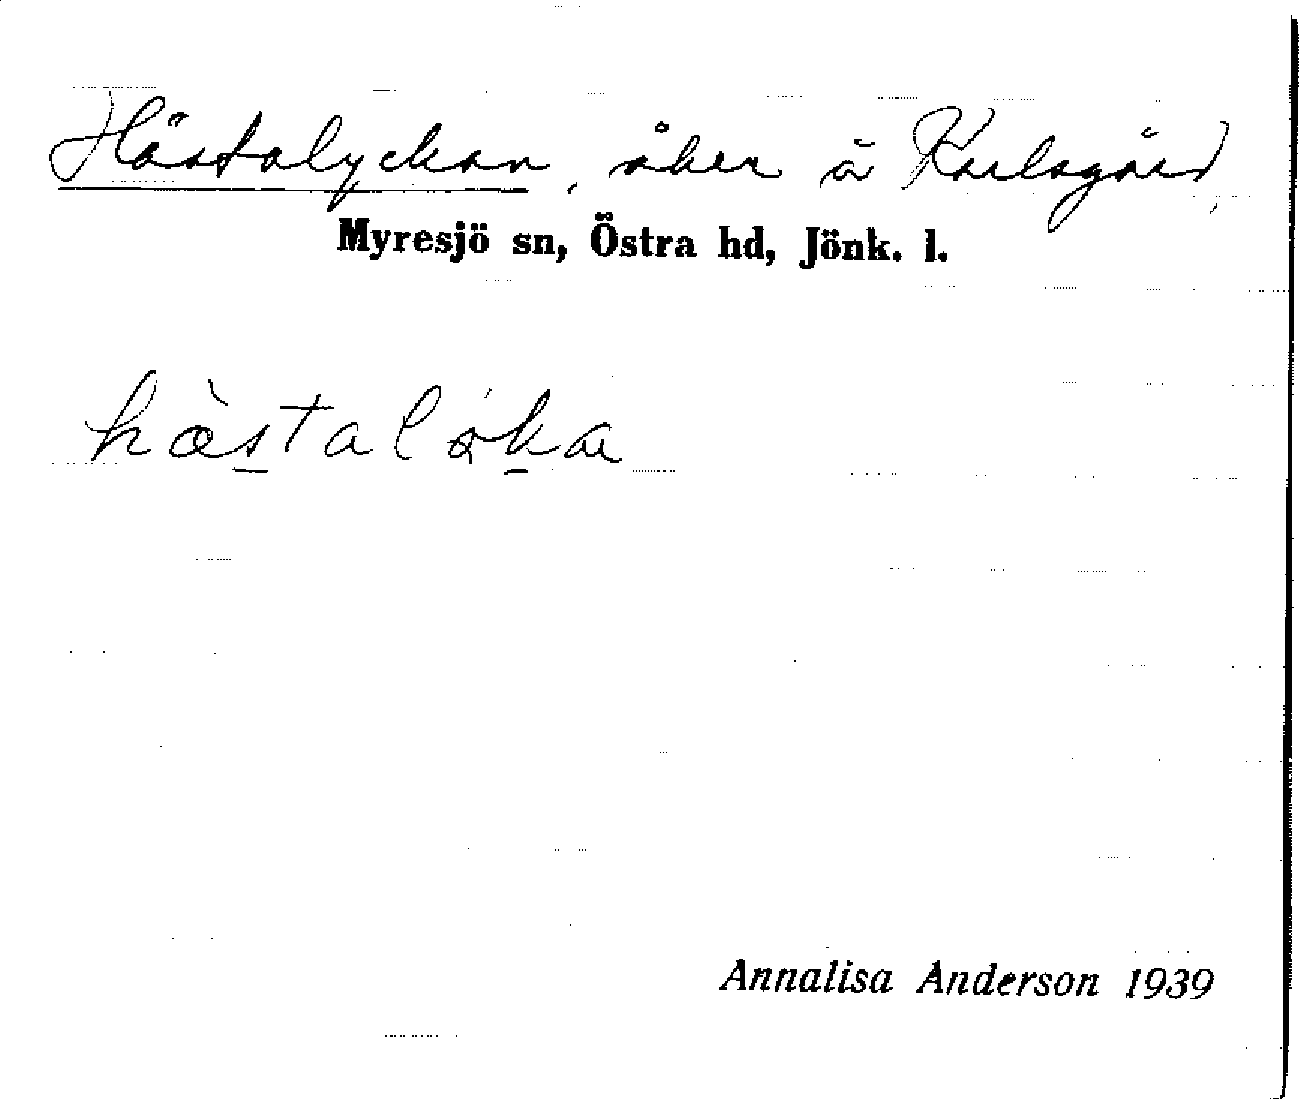 Hästalyckan, åker å Karlsgård,
Myresjö sn, Östra hd, Jönk. l.
hæ̀staløka
Annalisa Anderson 1939